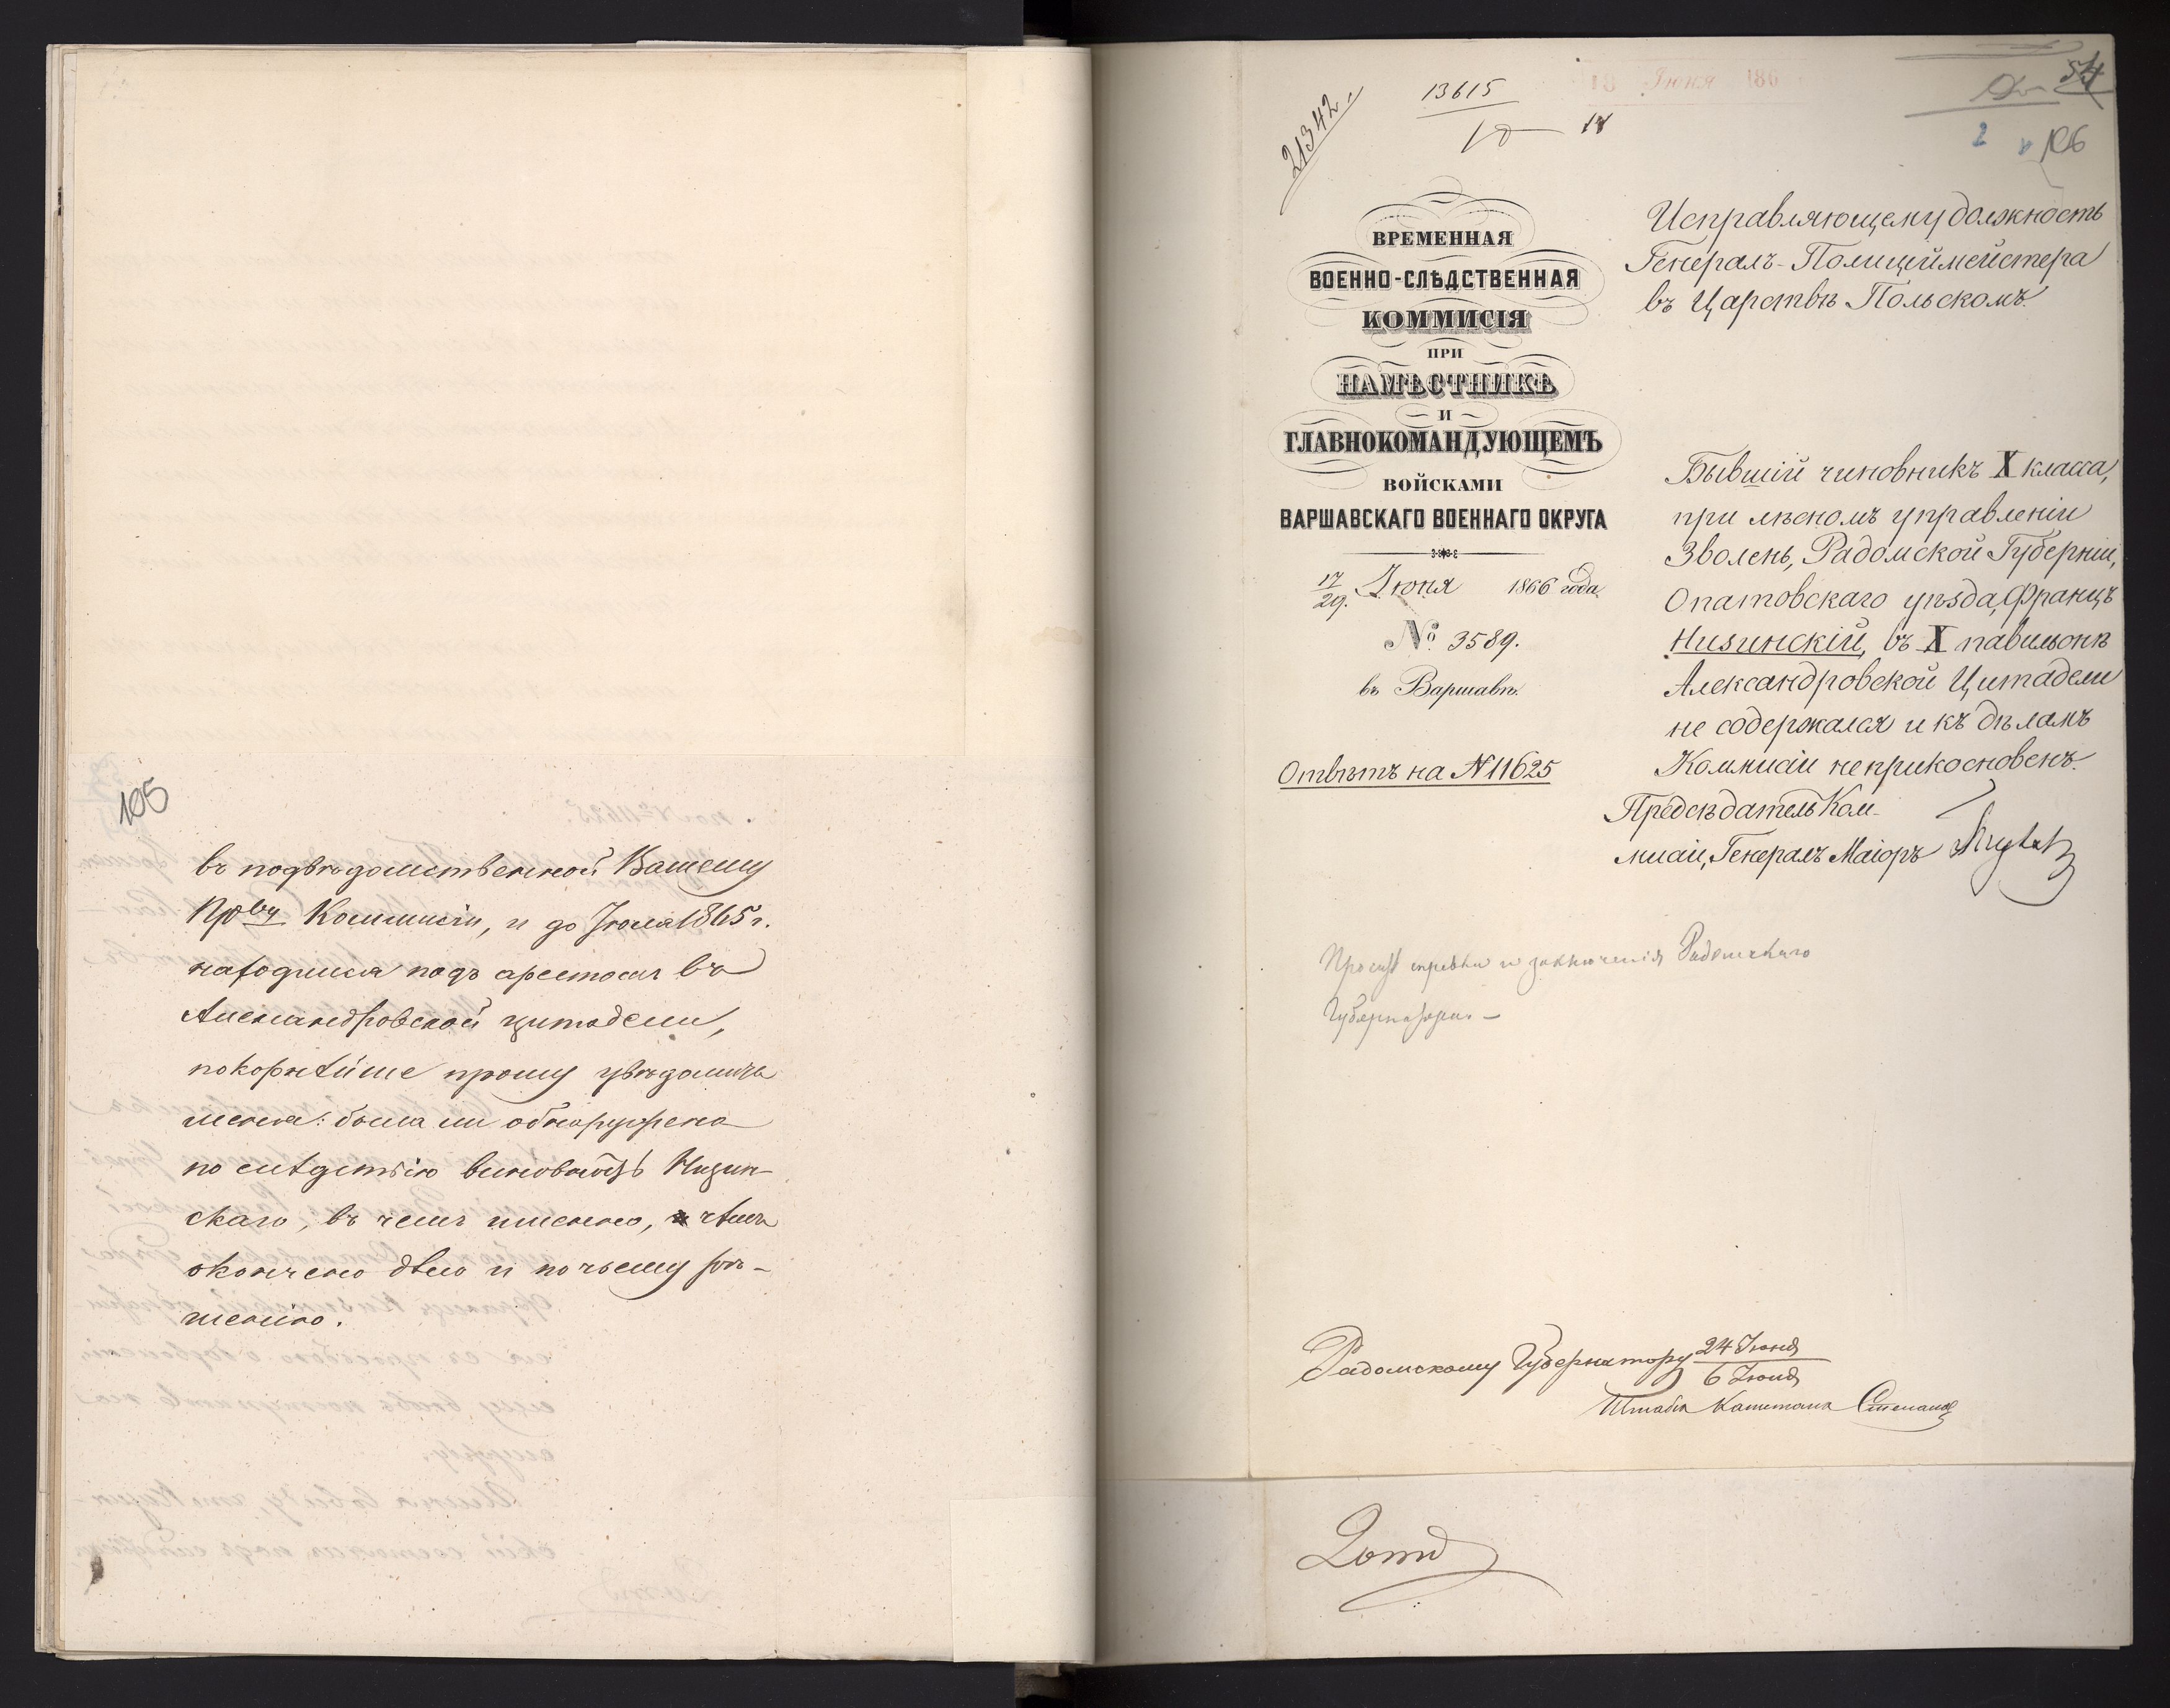 105
въ подвѣдомственной Вашему
Пр⁠ву Коммисіи, и до Іюля 1865 г.
находился подъ арестомъ въ
Александровской цитадели,
покорнѣйше прошу увѣдомить
меня: была ли обнаружена
по слѣдствію виновность Низин-
скаго, въ чемъ именно, чѣмъ
окончено дѣло и по чьему рѣ-
шенію.
21342.
13615
18 Іюня 186
54
106
ВРЕМЕННАЯ
ВОЕННО-СЛѢДСТВЕННАЯ
КОММИСІЯ
ПРИ
НАМѢСТНИКѢ
И
ГЛАВНОКОМАНДУЮЩЕМЪ
ВОЙСКАМИ
ВАРШАВСКАГО ВОЕННАГО ОКРУГА
17/29. Іюня 1866 года.
№ 3589.
въ Варшавѣ.
Отвѣтъ на N 11625
Исправляющему должность
Генералъ-Полицеймейстера
въ Царствѣ Польскомъ.
Бывшій чиновникъ X класса,
при лѣсномъ управленіи
Зволень, Радомской Губерніи,
Опатовскаго уѣзда, Францъ
Низинскій, въ X павильонѣ
Александровской Цитадели
не содержался и къ дѣламъ
Коммисіи неприкосновенъ.
Предсѣдатель Ком-
мисіи, Генералъ Маіоръ
справки и заключенія Радомскаго
Губернатора. –
Радомскому Губернатору 24 Іюня
6 Іюля
Штабсъ Капитанъ Степанов